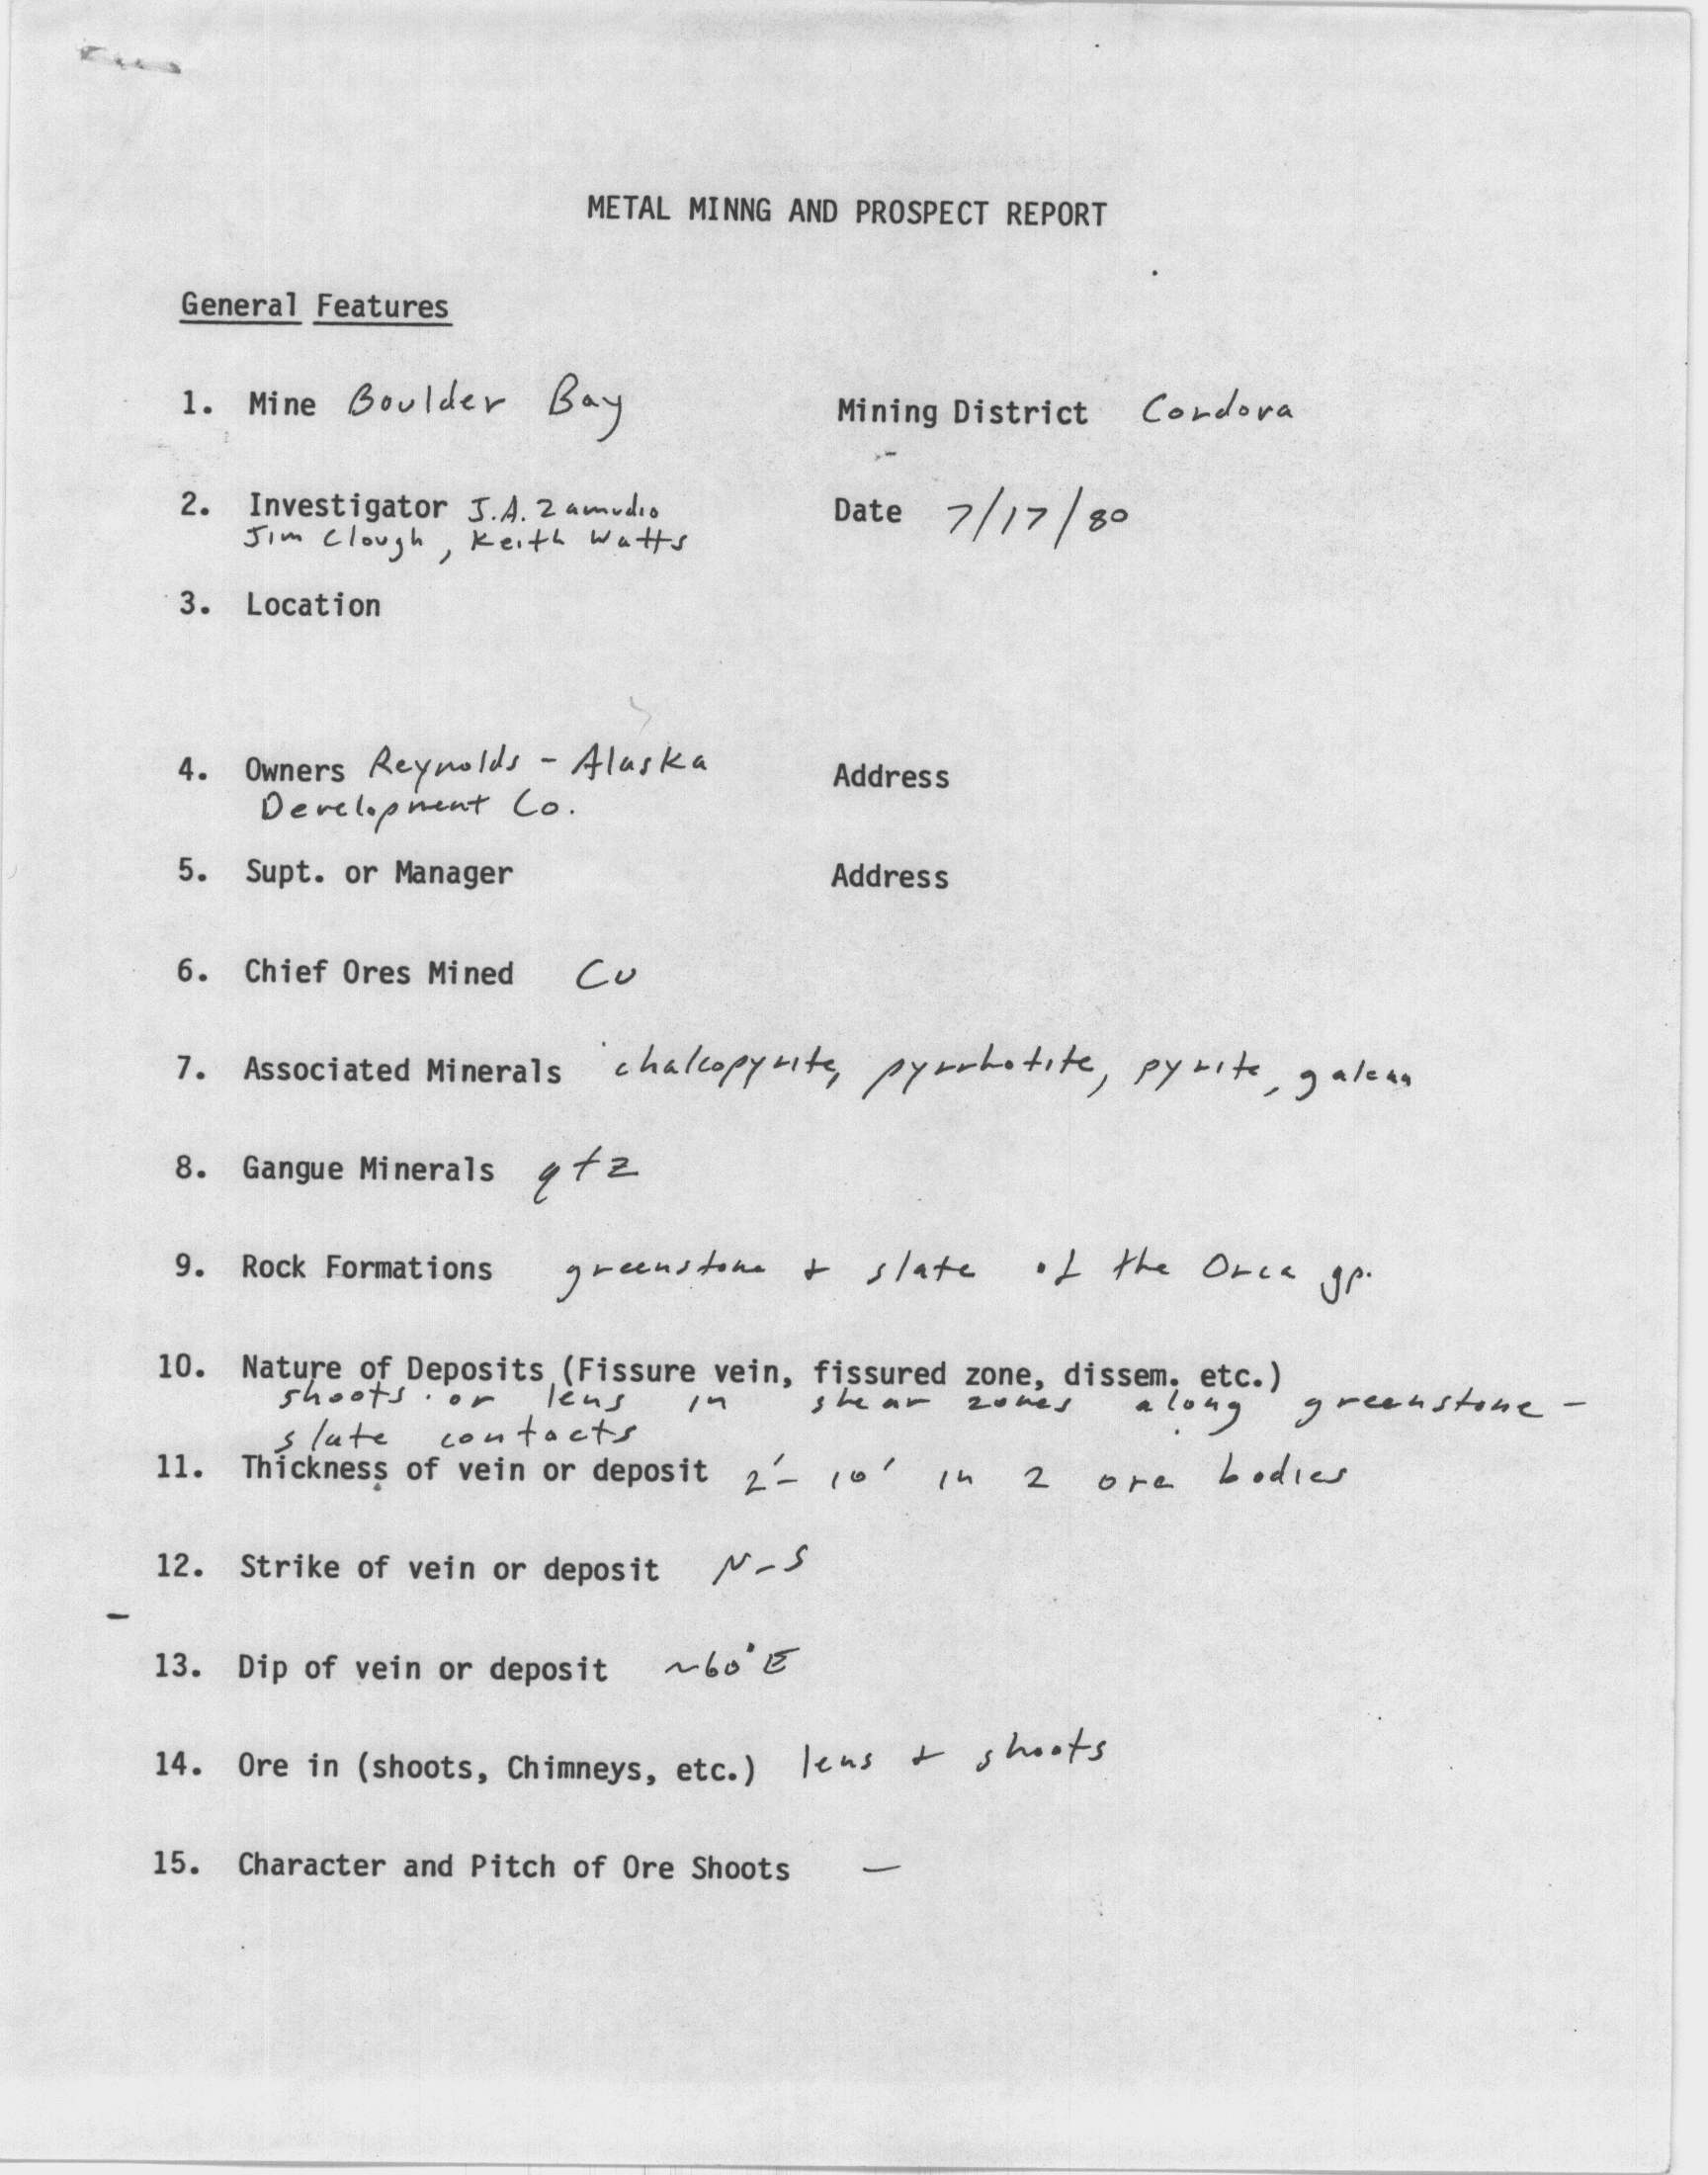 METAL MINNG AND PROSPECT REPORT
General Features
1. Mine Boulder Bay Mining District Cordova
2. Investigator J.A. Zamudio Date 7/17/80
Jim Clough, Keith Watts
3. Location
4. Owners Reynolds - Alaska Address
Development Co.
5. Supt. or Manager Address
6. Chief Ores Mined Cu
7. Associated Minerals chalcopyrite, pyrrhotite, pyrite, galena
8. Gangue Minerals qtz
9. Rock Formations greenstone + slate of the Orca gp.
10. Nature of Deposits (Fissure vein, fissured zone, dissem. etc.)
shoots or lens in shear zones along greenstone -
slate contacts
11. Thickness of vein or deposit 2'- 10' in 2 ore bodies
12. Strike of vein or deposit N-S
13. Dip of vein or deposit ~60°E
14. Ore in (shoots, Chimneys, etc.) lens + shoots
15. Character and Pitch of Ore Shoots —